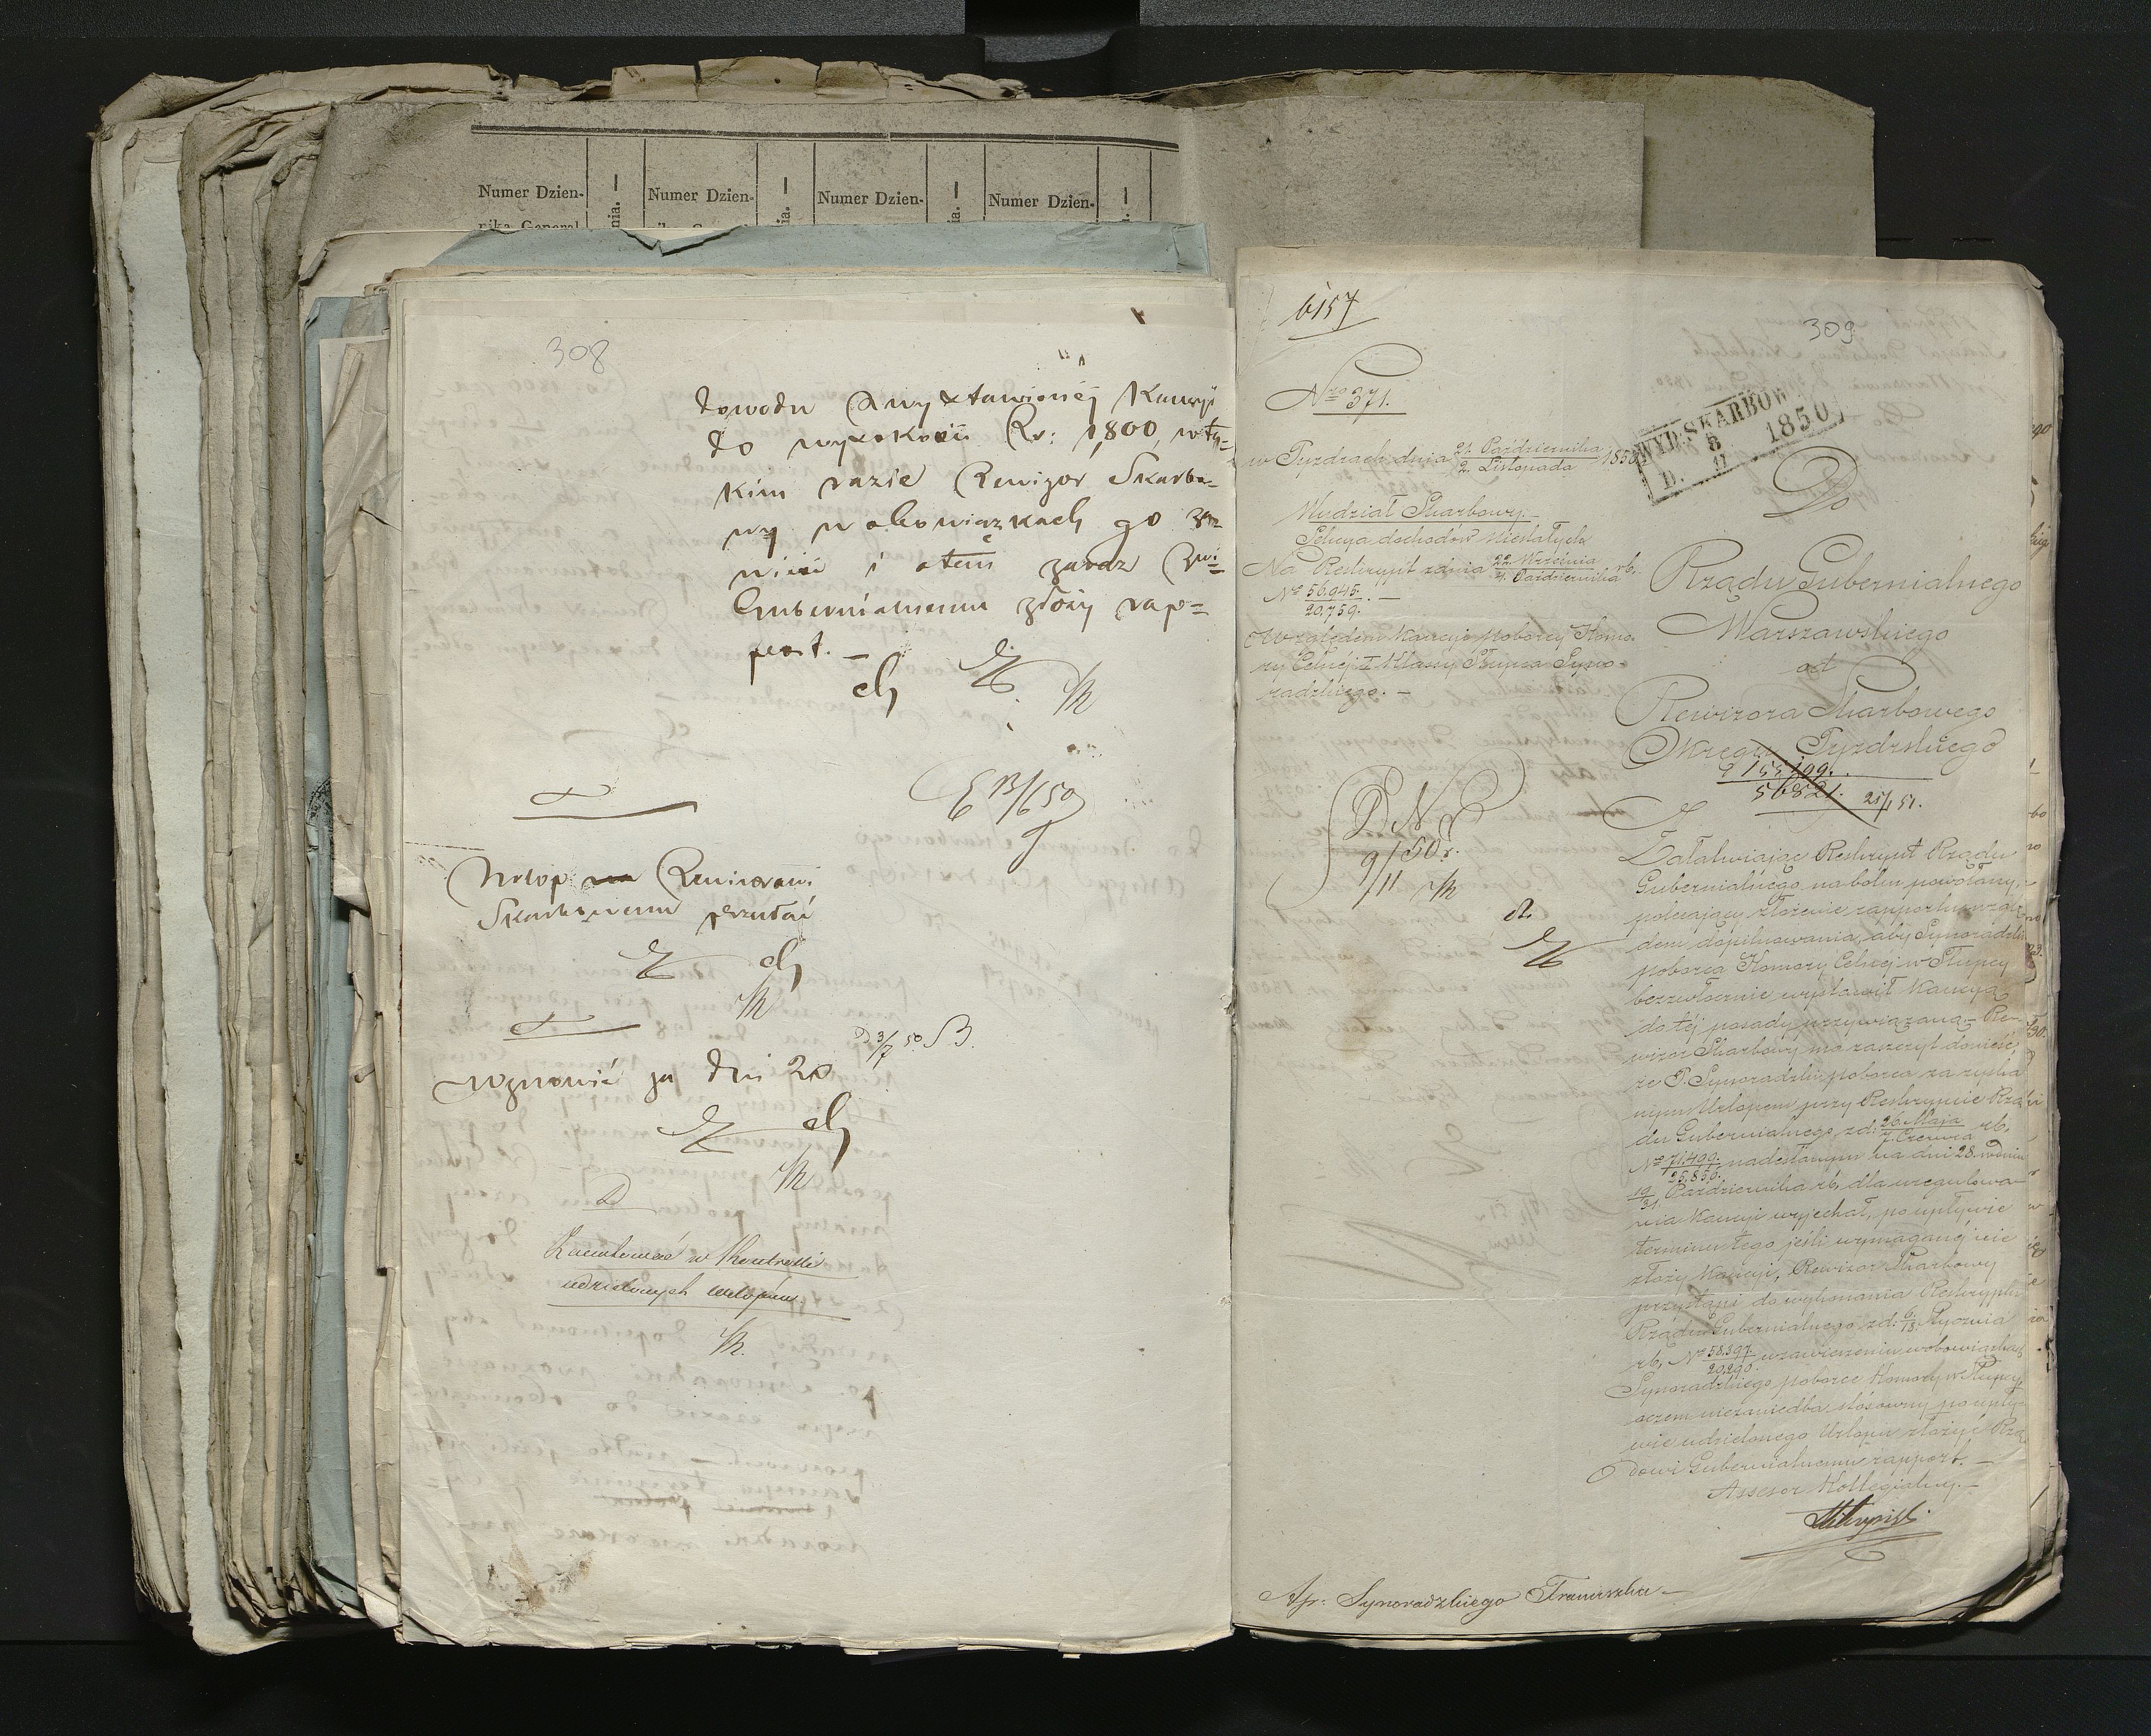 Numer Dzien- Numer Dzien- Numer Dzien- Numer Dzien-
nika General
308
dowodu wystawionéj Kaucyi
do wysokości Rs: 1,800, w ta-
kim razie Rewizor Skarbo-
wy w obowiązkach go za-
wiesi i o tem zaraz Rzą-
Gubernialnemu złoży rap-
port. —
Urlop Rewizorowi
Skarbowemu przesłać
D 3/7 50
wznowić za dni 20
Zanotować w Kontrolli
udzielonych urlopów.
6157
309
Nro 371.
w Pyzdrach dnia 21. Października / 2. Listopada 1850
WYD. SKARBOW
D. 8 11 1850
Wydział Skarbowy.
Sekcya dochodów Niestałych
Na Reskrypt z dnia 22. Września / 4. Października rb.
No 56,945. / 20,759. —
względem Kaucyi poborcy Komo-
ry Celnéj I Klassy Słupca Syno-
radzkiego. —
Do
Rządu Gubernialnego
Warszawskiego
od
Rewizora Skarbowego
Okręgu Pyzdrskiego
56821. 25/1 51.
9/11 50 r.
Załatwiając Reskrypt Rządu
Gubernialnego na boku powołany,
polecający złożenie rapportu wzglę-
dem dopilnowania, aby Synoradzki
poborca Komory Celnéj w Słupcy
bezzwłocznie wystawił Kaucyą
do téj posady przywiązaną — Re-
wizor Skarbowy ma zaszczyt donieść
że P. Synoradzki poborca za zyska-
nym Urlopem przy Reskrypcie Rzą-
du Gubernialnego z d: 26. Maja / 7. Czerwca rb.
No 71,499. / 25,856. nadesłanym na dni 28. w dniu
19/31 Października rb, dla uregulowa-
nia Kaucyi wyjechał, po upływie
terminu tego jeśli wymaganéj nie
złoży Kaucyi, Rewizor Skarbowy
przystąpi do wykonania Reskryptu
Rządu Gubernialnego z d: 6/18 Stycznia
rb, No 58,397. / 20,290. w zawieszeniu w obowiązkach
Synoradzkiego poborcę Komory w Słupcy
o czem niezaniedba stósowny po upły-
wie udzielonego Urlopu złożyć Rzą-
dowi Gubernialnemu rapport. —
Assesor Kollegialny. —
Ap: Synoradzkiego Franciszka —